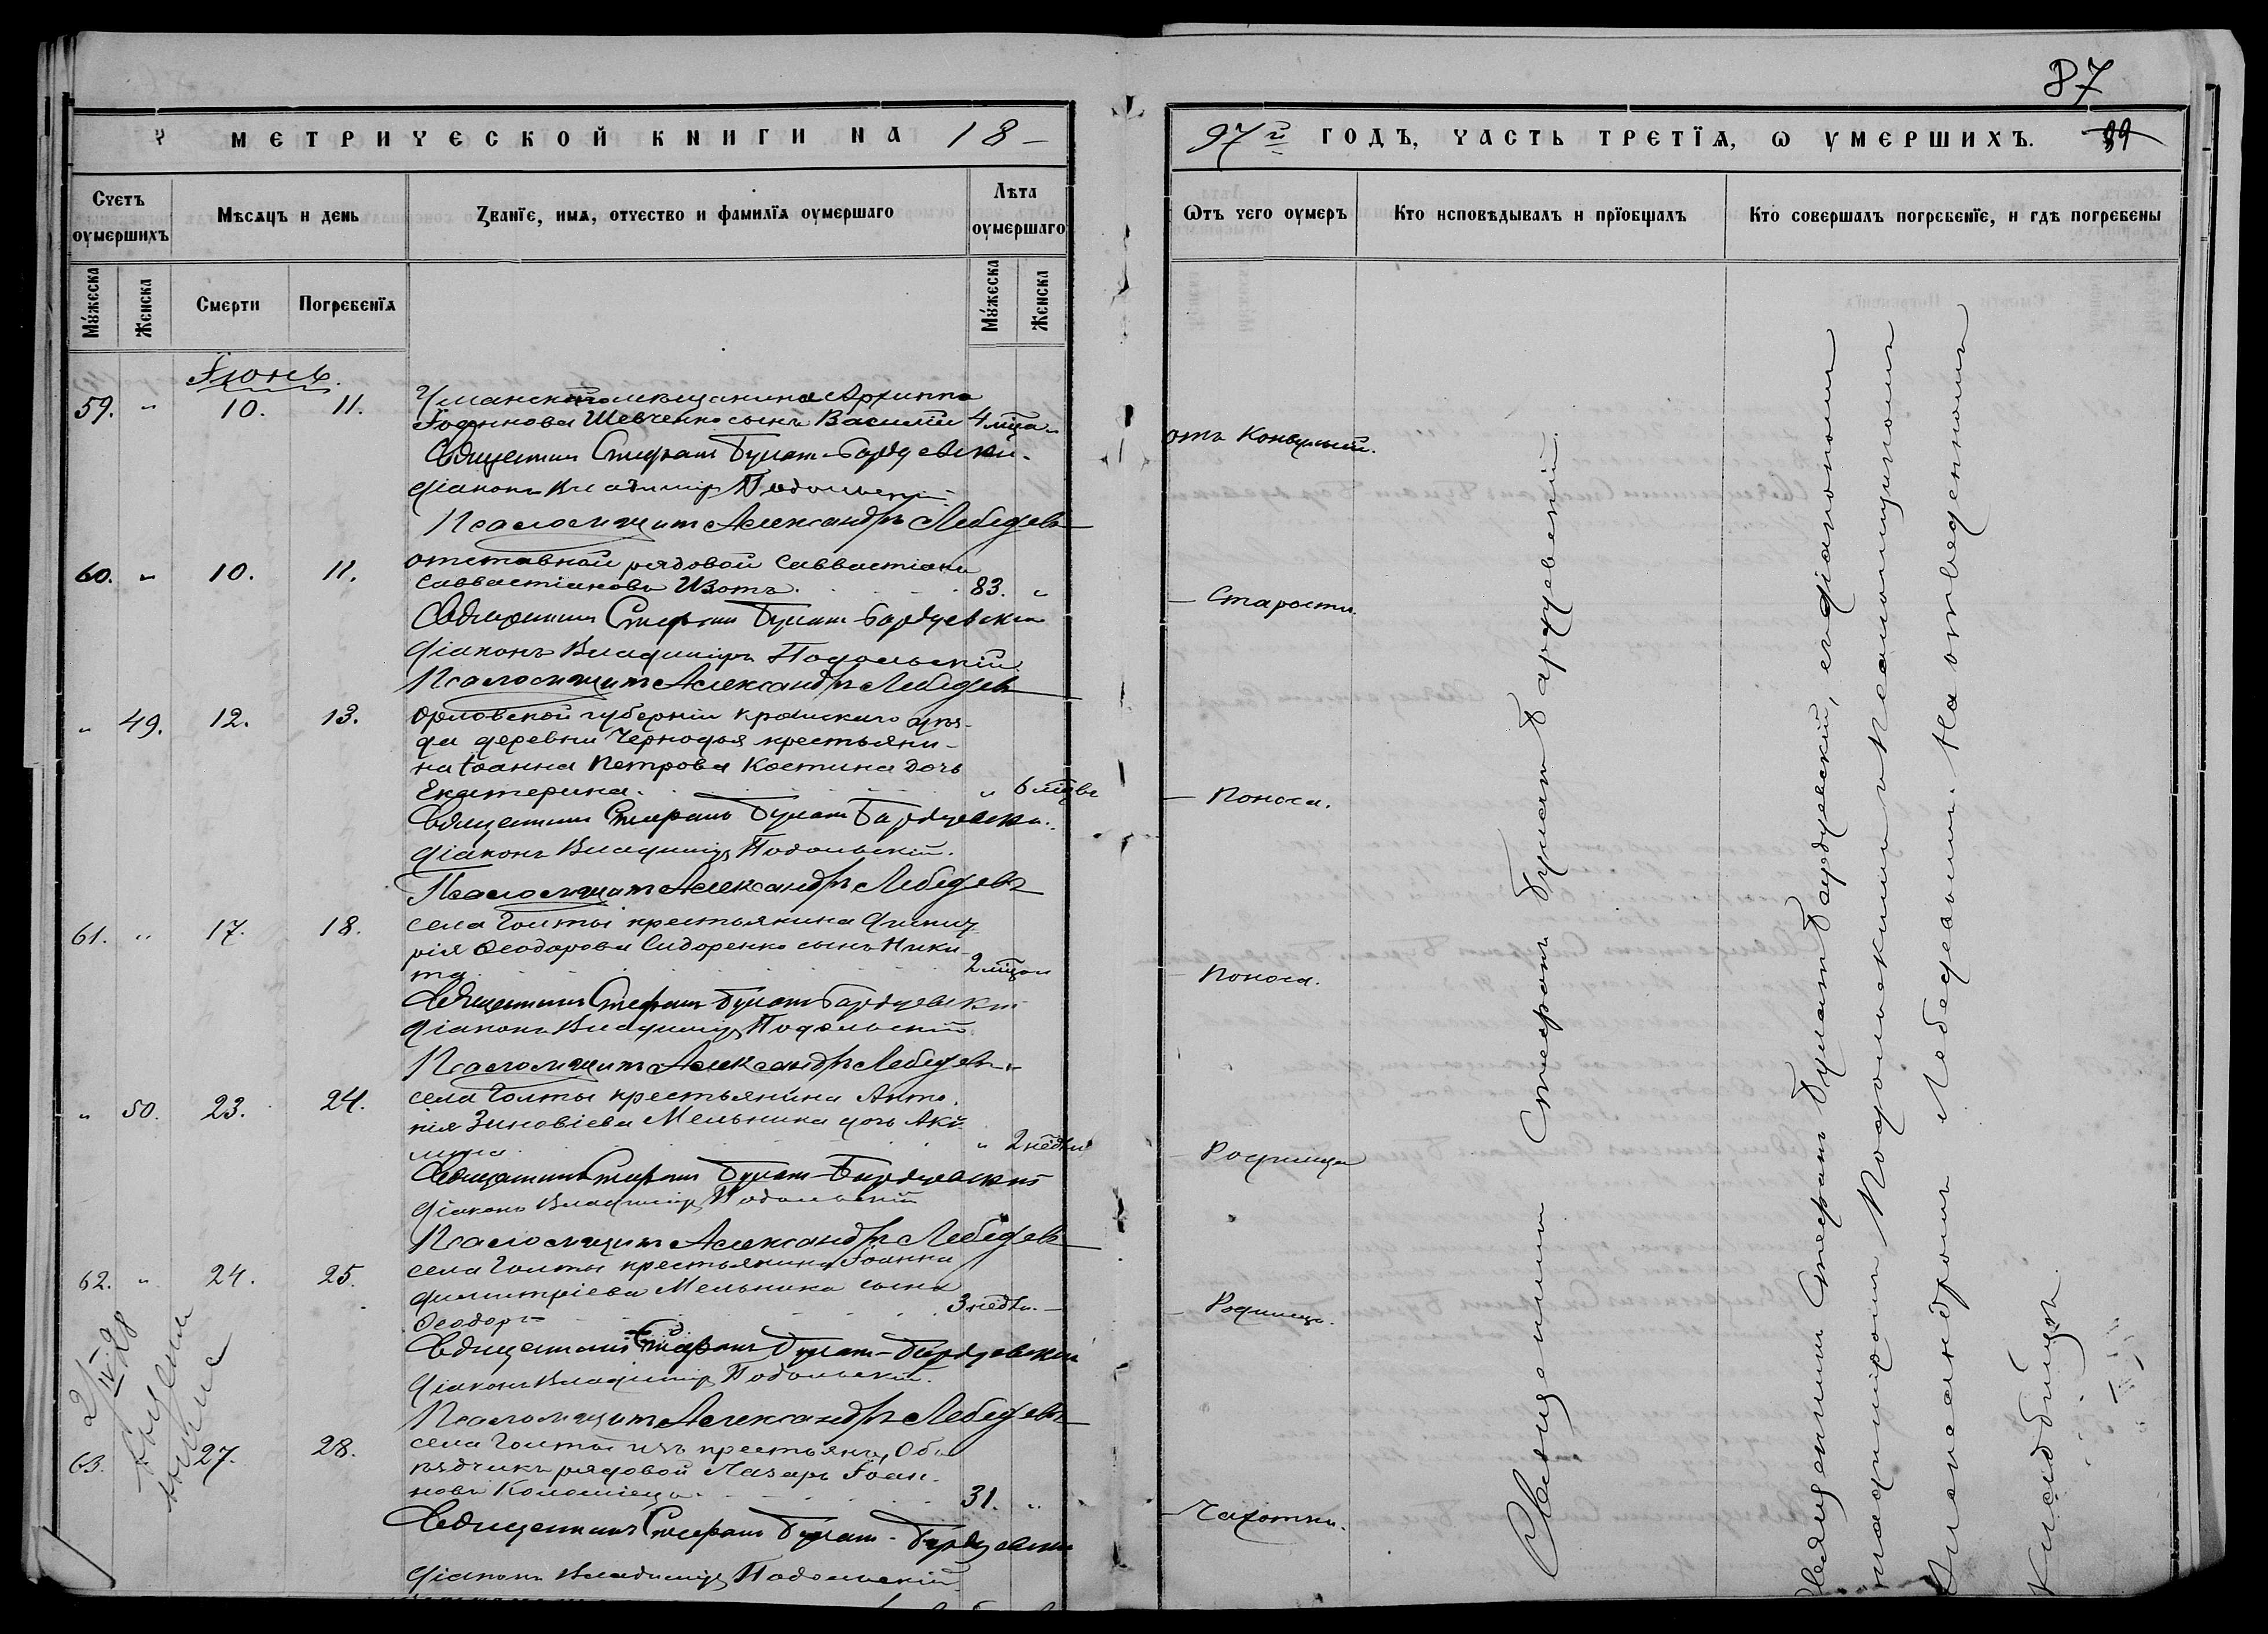 87
МЕТРИЧЕСКОЙ КНИГИ НА 18-
97й ГОДЪ, ЧАСТЬ ТРЕТІѦ, Ѡ УМЕРШИХЪ. 89
Счетъ оумершихъ
Мѣсѧцъ и день
Званїе, имѧ, отчество и фамилїѧ оумершаго
Лѣта оумершаго
Ѿтъ чего оумеръ
Кто исповѣдывалъ и прїобщалъ
Кто совершалъ погребенїе, и гдѣ погребены
Мужеска
Женска
Смерти
Погребенїѧ
Мужеска
Женска
Іюнь.
59. " 10. 11. Уманскаго мѣщанина Архиппа
Шевченко сынъ Василій 4 мѣца "
отъ Конвульсій.
Священникъ Стефанъ Булат-Бардуевскій.
Діаконъ Владиміръ Подольскій
Псаломщикъ Александръ Лебедевъ
60. " 10. 11. отставной рядовой Савватіанъ
Савватіановъ Изотъ. 83. "
— Старости.
Священникъ Стефанъ Булат-Бардуевскій
Діаконъ Владиміръ Подольскій.
Псаломщикъ Александръ Лебедевъ
" 49. 12. 13. Орловской губерніи Кромскаго уѣз-
да деревни Черкодья крестьяни-
на Іоанна Петрова Костина дочь
Екатерина. " 6 мѣцвъ
— Поноса.
Священникъ Стефанъ Булат Бардуевскій.
Діаконъ Владиміръ Подольскій.
Псаломщикъ Александръ Лебедевъ
61. " 17. 18. села Голты крестьянина Димит-
рія Ѳеодорова Сидоренко сынъ Ники-
та. 2 мѣцъ "
— Поноса.
Священникъ Стефанъ Булат Бардуевскій
Діаконъ Владиміръ Подольскій
Псаломщикъ Александръ Лебедевъ
" 50. 23. 24. села Голты крестьянина Анто-
нія Зиновіева Мельника дочь Аки-
лина. " 2 недѣли
— Родимца
Священникъ Стефанъ Булат-Бардуевскій
Діаконъ Владиміръ Подольскій
Псаломщикъ Александръ Лебедевъ
62. " 24. 25. села Голты крестьянина Іоанна
Димитріева Мельника сынъ
Ѳеодоръ 3 недѣли. —
— Родимца.
Священникъ Стефанъ Булат-Бардуевскій
Діаконъ Владиміръ Подольскій.
Псаломщикъ Александръ Лебедевъ
63. 27. 28. села Голты изъ крестьянъ, Объ
ѣздчикъ рядовой Лазарь Іоан-
новъ Коломіецъ. 31. "
— Чахотки.
Священникъ Стефанъ Булат-Бардуевскій
Діаконъ Владиміръ Подольскій
2/IV 28
Священникъ Стефанъ Булатъ Бардуевскій.
Священникъ Стефанъ Булатъ Бардуевскій, съ діакономъ
Владиміромъ Подольскимъ и Псаломщикомъ
Александромъ Лебедевымъ. На отведенномъ
Кладбищѣ.